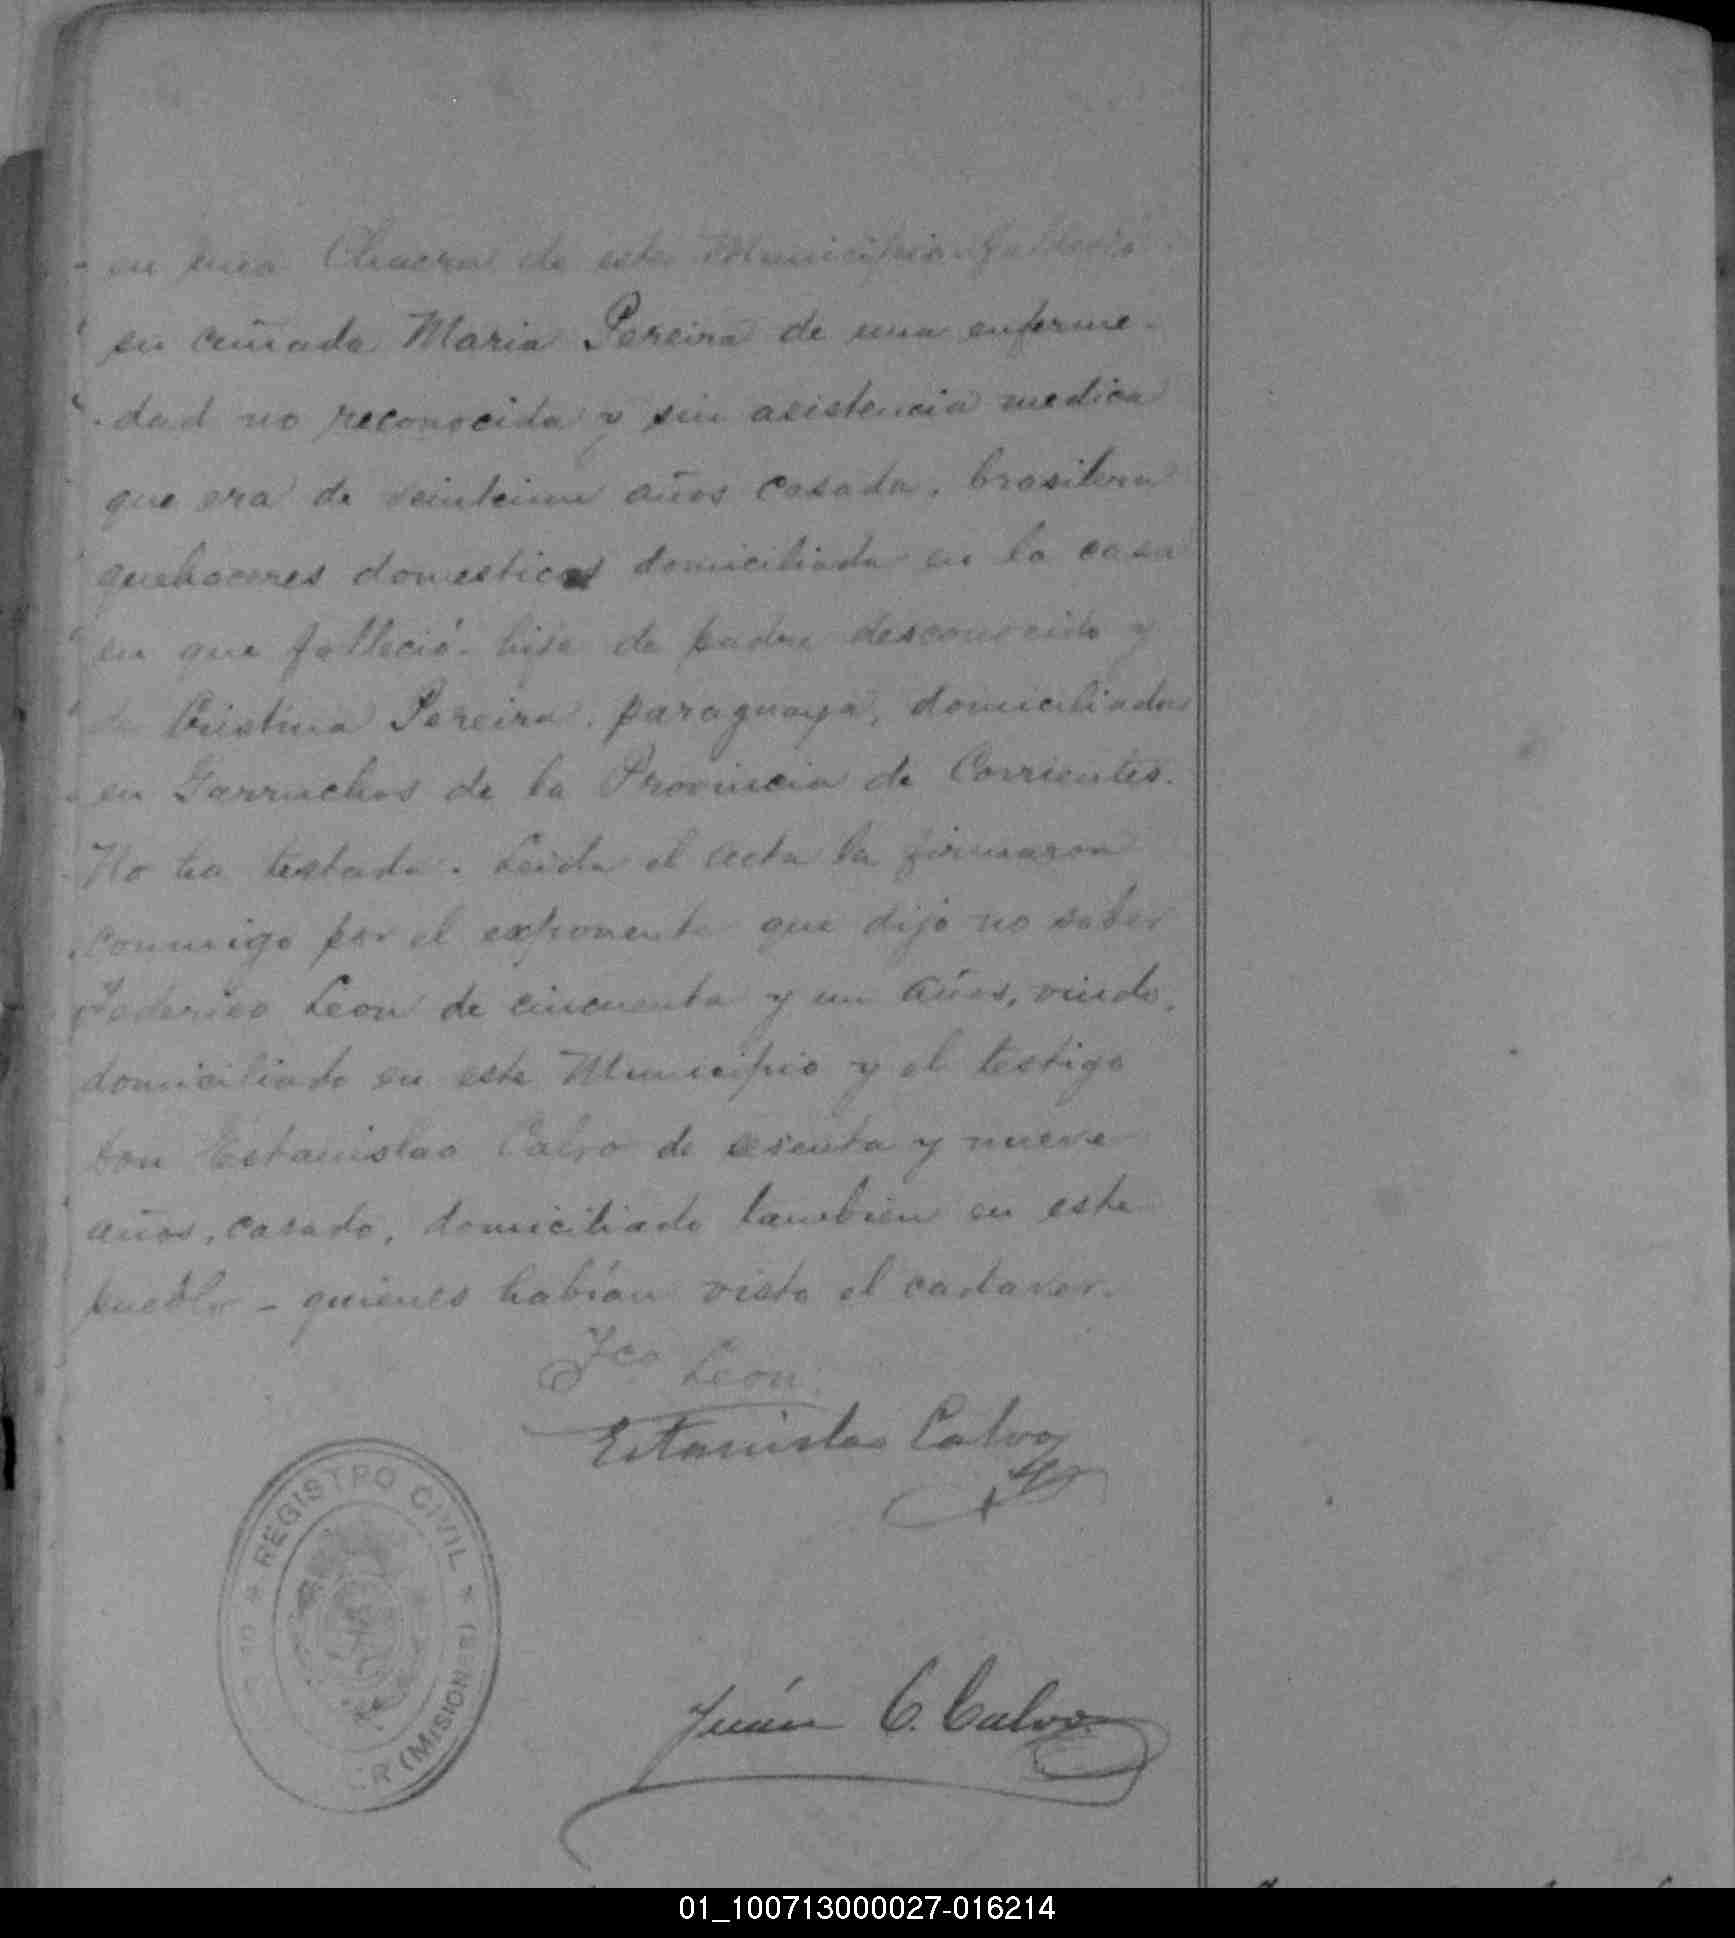 en una Chacra de este Municipio falleció
su cuñada Maria Pereira de una enferme-
dad no reconocida y sin asistencia medica
que era de años casada, brasilera
quehaceres domesticos domiciliada en la casa
en que falleció- hija de padre desconocido y
de Cristina Pereira, paraguaya, domiciliada
en Garruchos de la Provincia de Corrientes.
No ha testado. Leida el acta la firmaron
conmigo por el exponente que dijo no saber
Federico Leon de cincuenta y un años, viudo,
domiciliado en este Municipio y el testigo
don Estanislao Calvo de sesenta y nueve
años, casado, domiciliado tambien en este
pueblo - quienes habían visto el cadaver.
Fco Leon
Estanislao Calvo
REGISTRO CIVIL
(MISIONES)
Juán C. Calvo
01_100713000027-016214